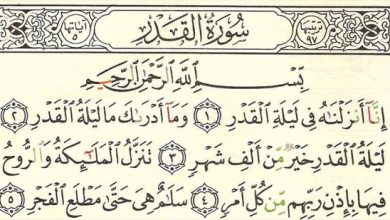 آياتها ٥ سُورَةُ الْقَدْرِ ترتيبها ٩٧
بِسْمِ اللَّهِ الرَّحْمَٰنِ الرَّحِيمِ
إِنَّا أَنزَلْنَاهُ فِي لَيْلَةِ الْقَدْرِ ١ وَمَا أَدْرَاكَ مَا لَيْلَةُ الْقَدْرِ ٢
لَيْلَةُ الْقَدْرِ خَيْرٌ مِّنْ أَلْفِ شَهْرٍ ٣ تَنَزَّلُ الْمَلَائِكَةُ وَالرُّوحُ
فِيهَا بِإِذْنِ رَبِّهِم مِّن كُلِّ أَمْرٍ ٤ سَلَامٌ هِيَ حَتَّىٰ مَطْلَعِ الْفَجْرِ ٥